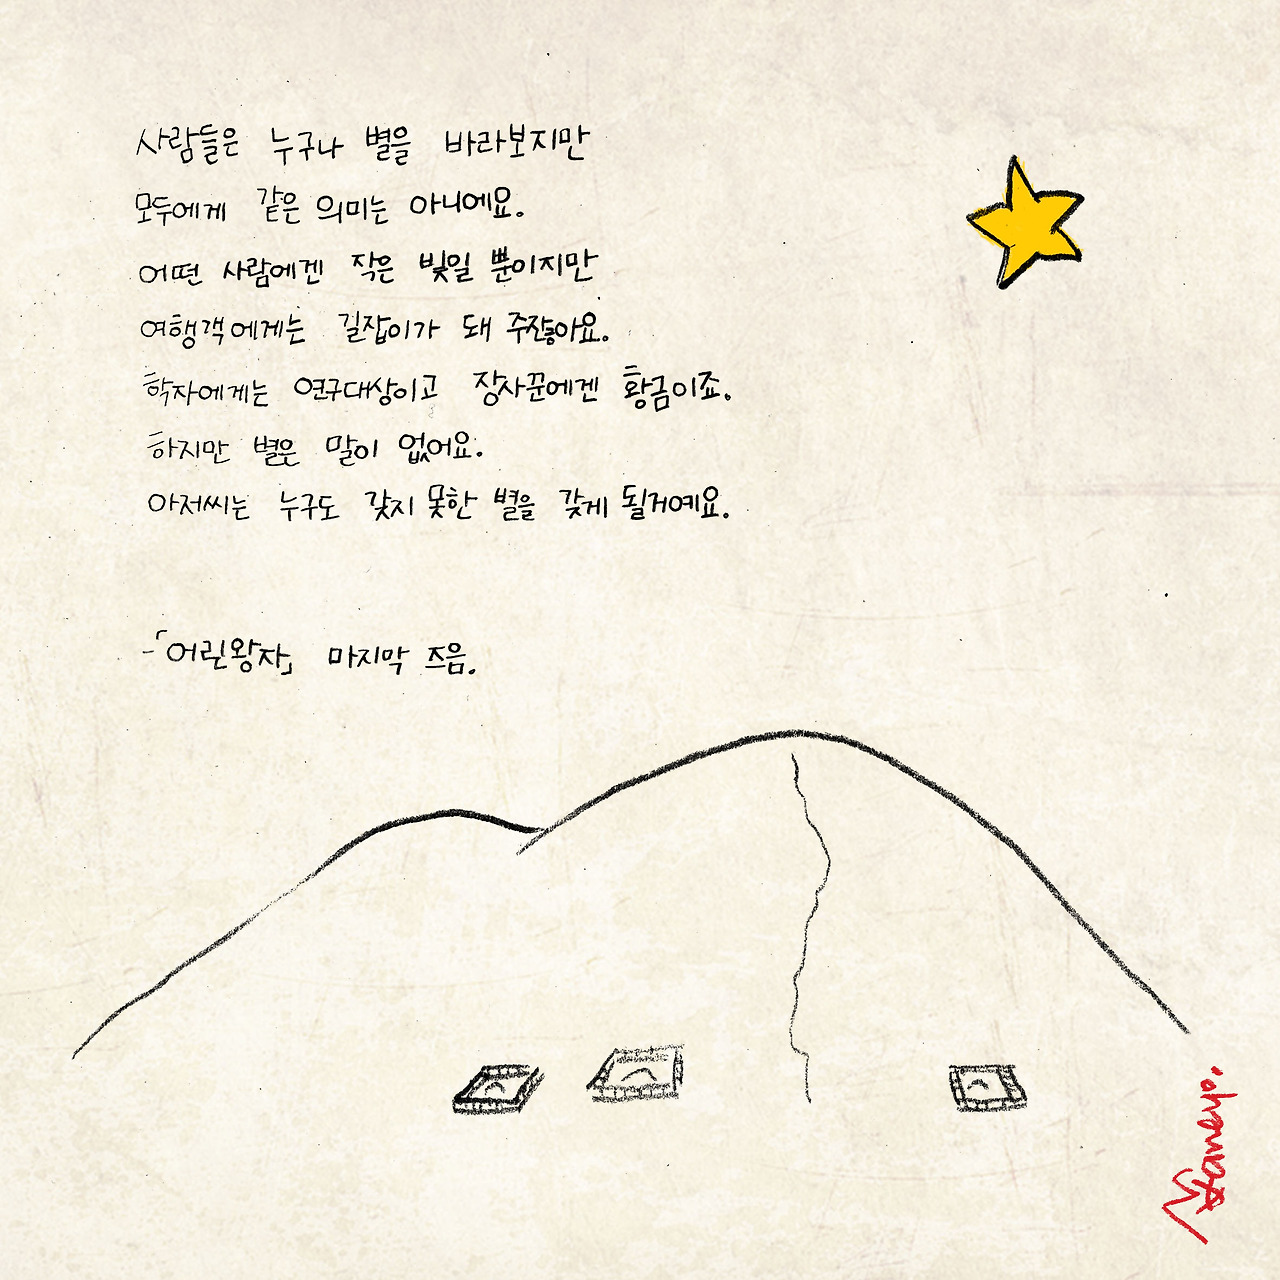 사람들은 누구나 별을 바라보지만
모두에게 같은 의미는 아니에요.
어떤 사람에겐 작은 빛일 뿐이지만
여행객에게는 길잡이가 돼 주잖아요.
학자에게는 연구대상이고 장사꾼에겐 황금이죠.
하지만 별은 말이 없어요.
아저씨는 누구도 갖지 못한 별을 갖게 될거예요.
-「어린왕자」 마지막 즈음.